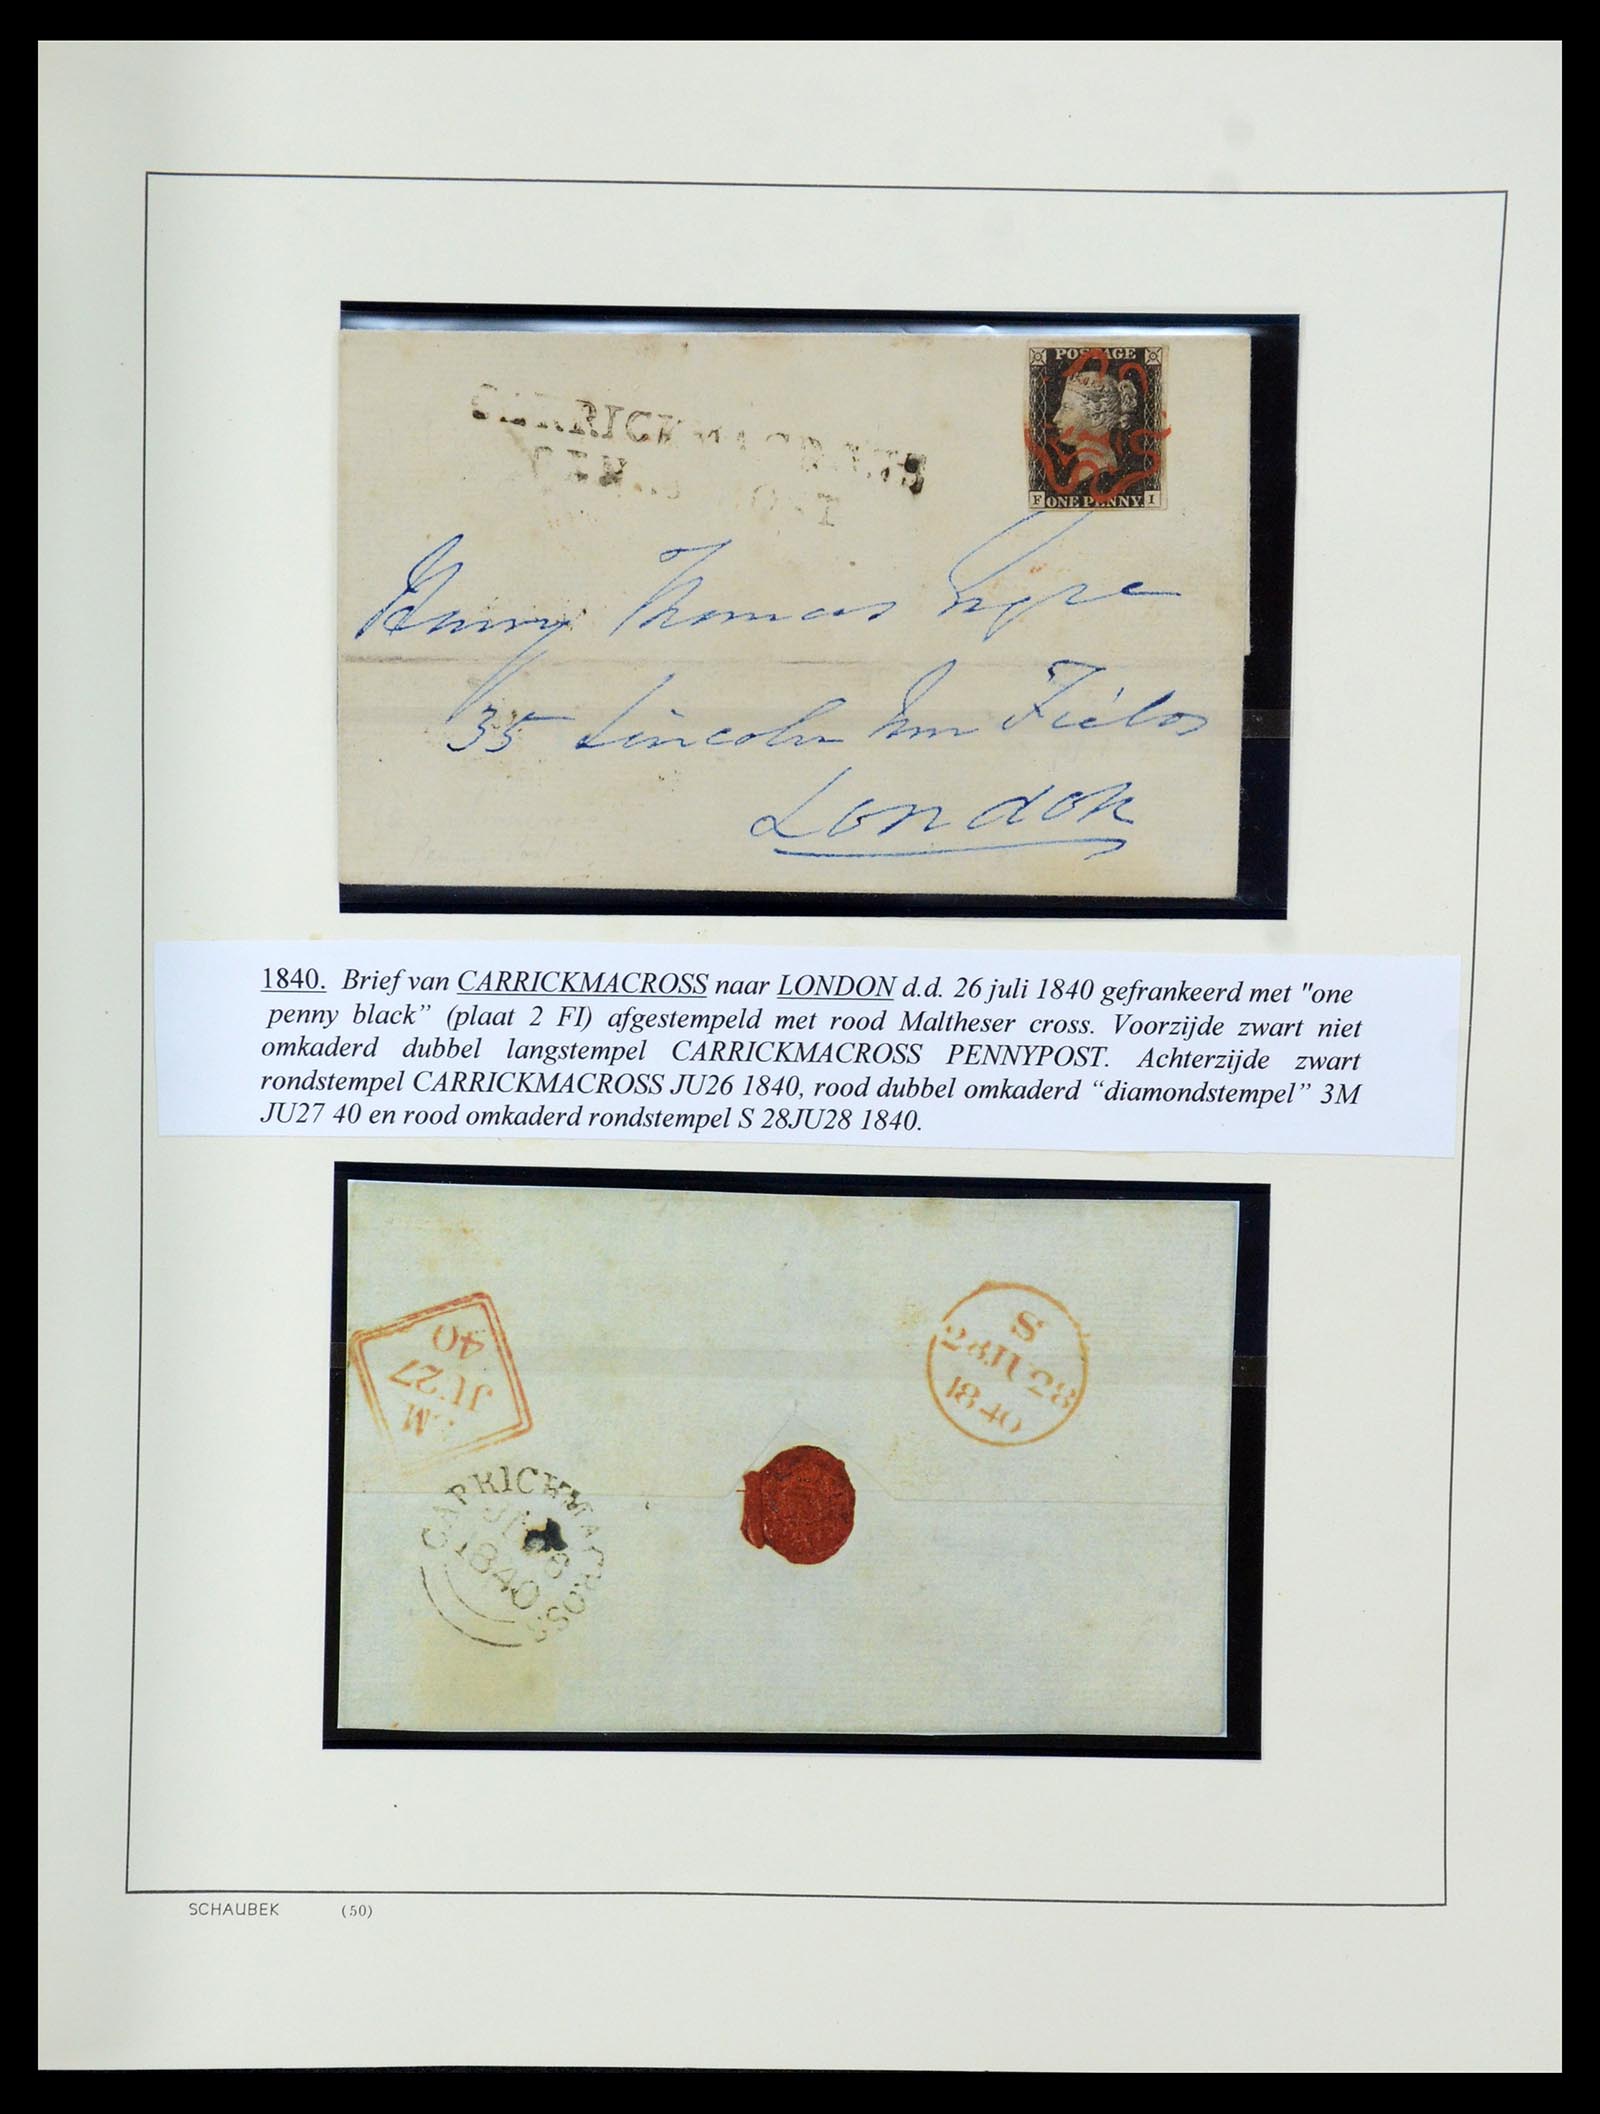 CARRICKMACROSS
PEN POST
POSTAGE
F ONE PENNY. I
Henry Thomas
35 Lincoln Inn Fields
London
1840. Brief van CARRICKMACROSS naar LONDON d.d. 26 juli 1840 gefrankeerd met "one
penny black” (plaat 2 FI) afgestempeld met rood Maltheser cross. Voorzijde zwart niet
omkaderd dubbel langstempel CARRICKMACROSS PENNYPOST. Achterzijde zwart
rondstempel CARRICKMACROSS JU26 1840, rood dubbel omkaderd “diamondstempel” 3M
JU27 40 en rood omkaderd rondstempel S 28JU28 1840.
M
JU27
40
S
28JU28
1840
CARRICKMACROSS
JU 26
1840
SCHAUBEK (50)